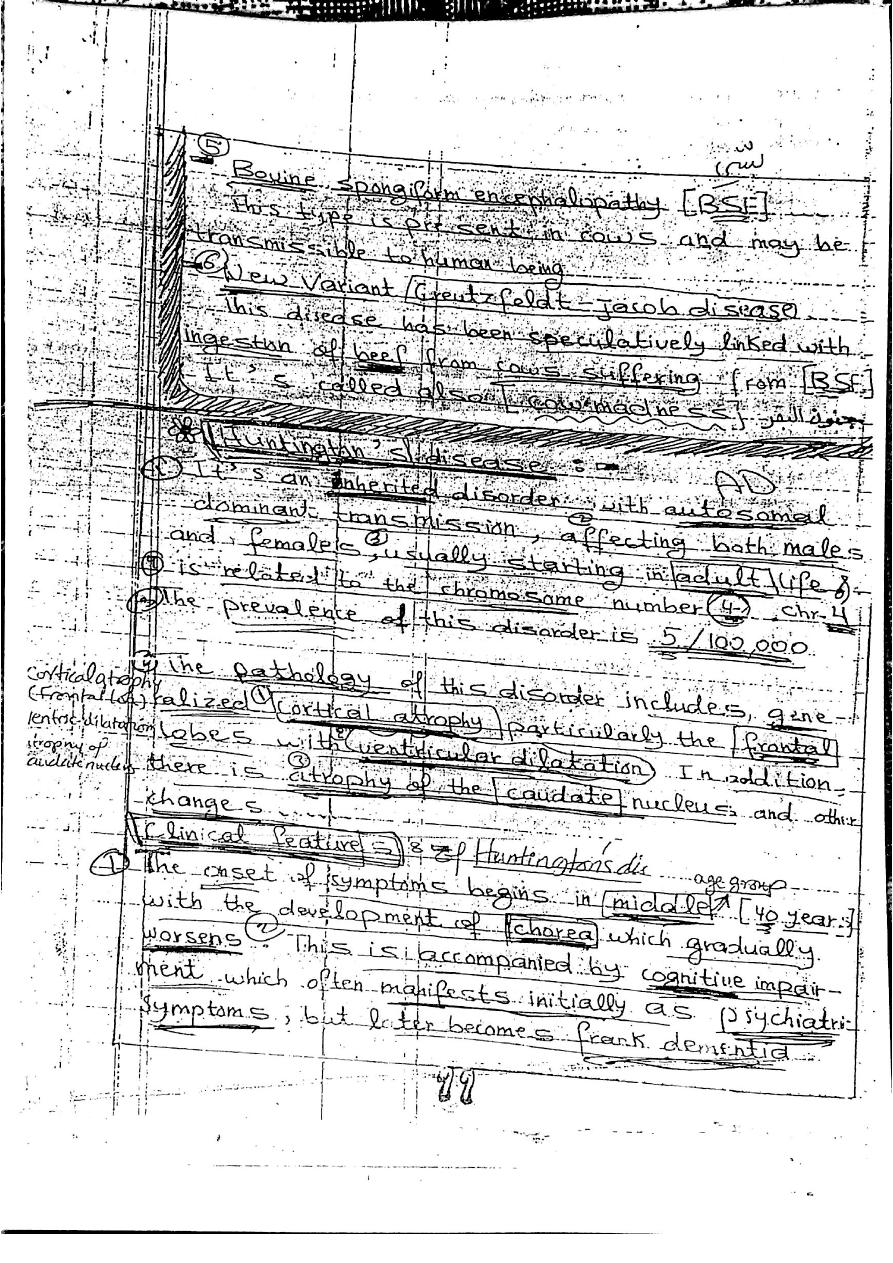 ⑤
Bovine spongiform encephalopathy [BSE]
This type is present in cows and may be
transmissible to human being
⑥ New Variant Creutzfeldt-jacob disease
This disease has been speculatively linked with
ingestion of beef from cows suffering from [BSE]
It's called also [cow madness] جنون البقر
* Huntington's disease :-
① It's an inherited disorder with autosomal
AD
dominant transmission, ② affecting both males
and females, ③ usually starting in adult life &
④ is related to the chromosome number 4 chr-4
The prevalence of this disorder is 5/100,000
The pathology of this disorder includes, gene-
ralized ① cortical atrophy particularly the frontal
lobes with ② ventricular dilatation In addition,
there is ③ atrophy of the caudate nucleus and other
changes
cortical atrophy
(frontal lob)
ventric-dilatation
atrophy of
caudate nucleus
Clinical features : of Huntington's dis
① The onset of symptoms begins in middle age group [40 year]
with the development of chorea which gradually
worsens. ② This is accompanied by cognitive impair-
ment which often manifests initially as psychiatri-
symptoms, but later becomes frank dementid